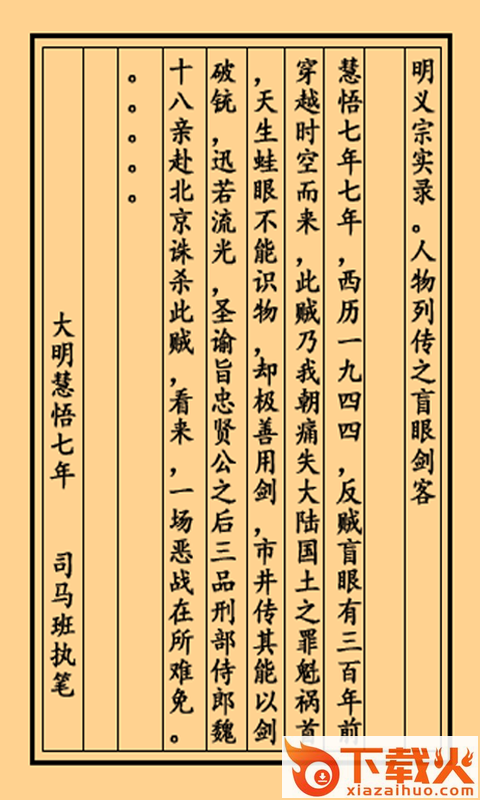 明义宗实录。人物列传之盲眼剑客
慧悟七年七年，西历一九四四，反贼盲眼有三百年前
穿越时空而来，此贼乃我朝痛失大陆国土之罪魁祸首
，天生蛙眼不能识物，却极善用剑，市井传其能以剑
破铳，迅若流光，圣谕旨忠贤公之后三品刑部侍郎魏
十八亲赴北京诛杀此贼，看来，一场恶战在所难免。
。。。。。
大明慧悟七年 司马班执笔
下载火
xiazaihuo.com